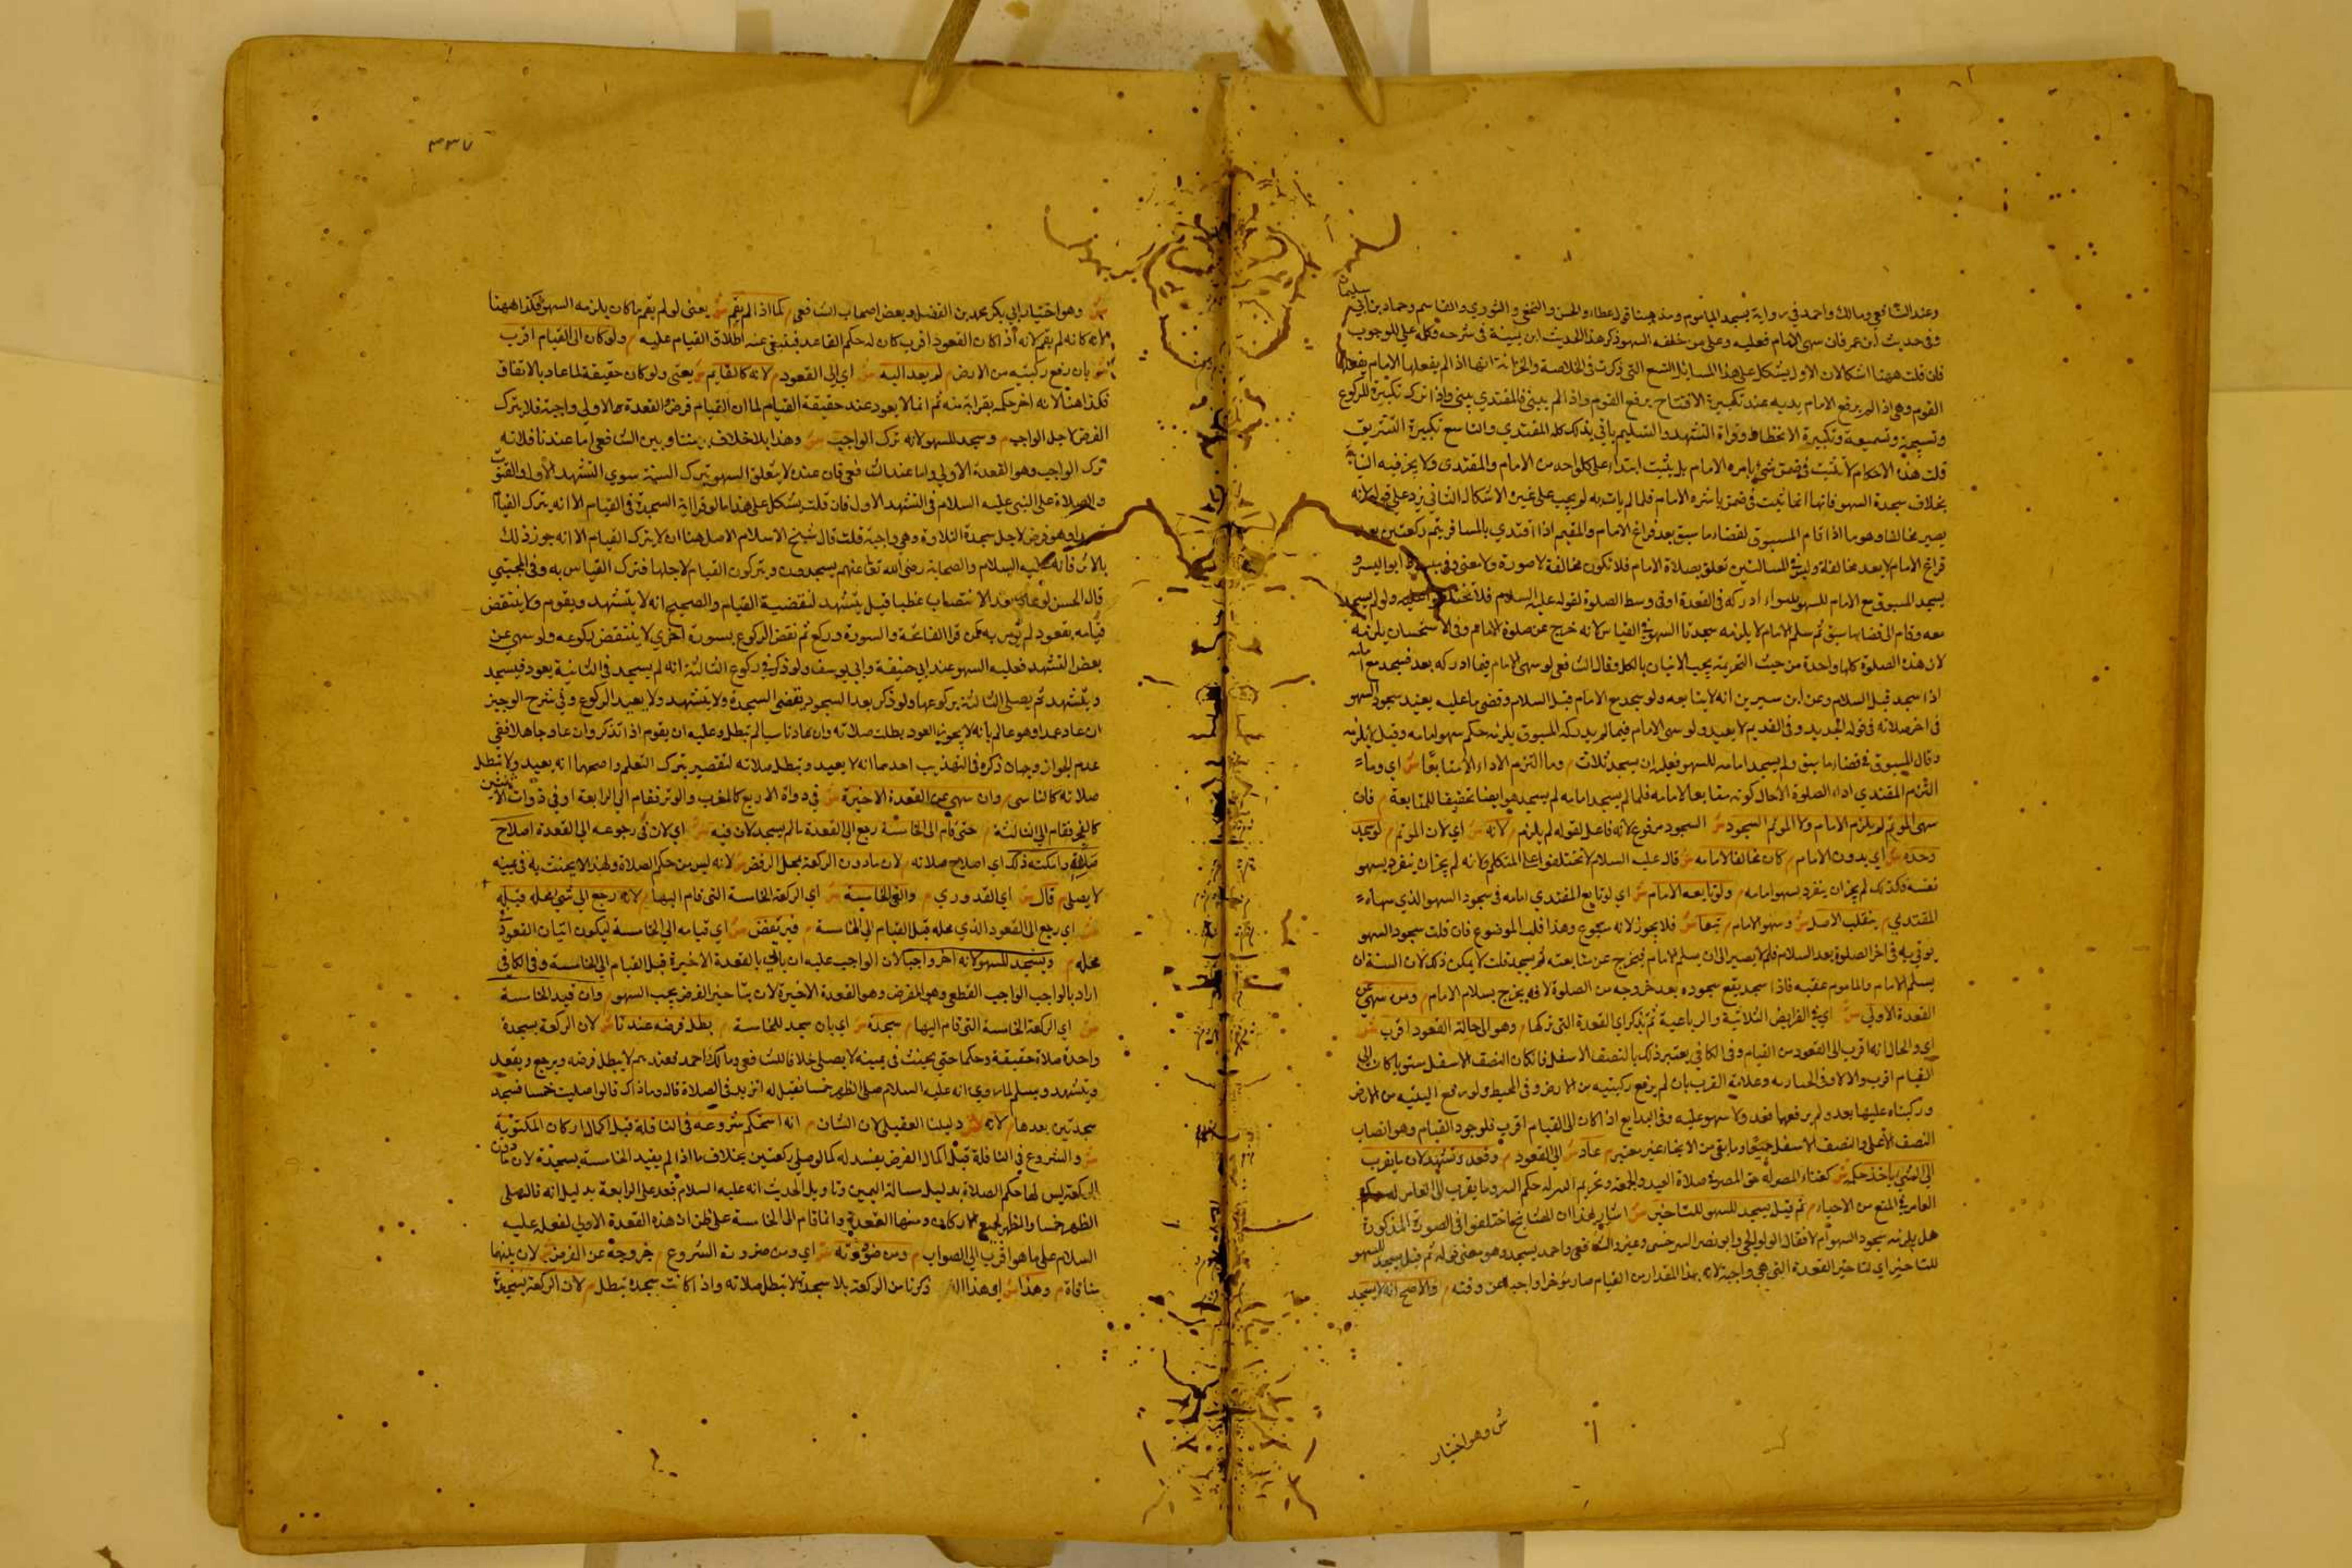 وعند الشافعي ومالك واحمد في رواية يسجد المأموم ومذهبنا قول عطاء والحسن والنخعي والثوري والقاسم وحماد بن ابي
سليمان
وفي حديث ابن عمر فان سهى الامام فعليه وعلى من خلفه السهو ذكر هذا الحديث ابن تيمية في شرحه وكلمة على للوجوب
فان قلت ههنا اشكالات الاول يشكل على هذا المسائل التسع التي ذكرت في الخلاصة والخزانة انها اذا لم يفعلها الامام يفعلها
القوم وهي اذا لم يرفع الامام يديه عند تكبيرة الافتتاح يرفع القوم واذا لم يثني فالمقتدي يثني واذا ترك تكبيرة الركوع
وتسبيحه وتسميعه وتكبيرة الانحطاط وقراة التشهد والتسليم يأتي بذلك كله المقتدي والتاسع تكبيرة التشريق
قلت هذه الاحكام لا تثبت في ضمن شيء باشره الامام بل يثبت ابتداء على كل واحد من الامام والمقتدى ولا يجري فيه النيابة
بخلاف سجدة السهو فانها انما تثبت في ضمن باشره الامام فلما لم يات به لم يجب على غيره الاشكال الثاني يرد على قوله لانه
يصير مخالفا وهو ما اذا قام المسبوق لقضاء ما سبق بعد فراغ الامام والمقيم اذا اقتدي بالمسافر يتم ركعتين بعد
فراغ الامام لا يعد مخالفة وليس في المسالتين تعلق بصلاة الامام فلا تكون مخالفة لا صورة ولا معنى وفي مبسوط ابو اليسر
يسجد المسبوق مع الامام للسهو سواء ادركه في القعدة او في وسط الصلوة لقوله عليه السلام فلا تختلفوا عليه ولو لم يسجد
معه وقام الى قضا ما سبق ثم سلم الامام لا يلزمه سجدتا السهو في القياس لانه خرج عن صلوة الامام وفي الاستحسان يلزمه
لان هذه الصلوة كلها واحدة من حيث التحريمة يجب الاتيان بالكل وقال الشافعي لو سهى الامام فيما ادركه بعد فسجد مع امامه
اذا سجد قبل السلام وعن ابن سيرين انه لا يتابعه ولو سجد مع الامام قبل السلام وقضى ما عليه يعيد سجود السهو
في اخر صلاته في قوله الجديد وفي القديم لا يعيد ولو سهى الامام فيما لم يدركه المسبوق يلزمه حكم سهو امامه وقيل لا يلزمه
وقال المسبوق في قضاء ما سبق ولم يسجد امامه للسهو فعليه ان يسجد ثلاث م وما التزم الاداء الا متابعا ش اي وما
التزم المقتدي اداء الصلوة الا حال كونه متابعا لامامه فلما لم يسجد امامه لم يسجد هو ايضا تحقيقا للمتابعة م فان
سهى الموتم لم يلزم الامام ولا الموتم السجود ش السجود مرفوع لانه فاعل لقوله لم يلزم م لانه ش اي لان الموتم م لو سجد
وحده ش اي بدون الامام م كان مخالفا لامامه ش قال عليه السلام لا تختلفوا على المتكلم لانه لم يجز ان ينفرد بسهو
نفسه فكذلك لم يجز ان ينفرد بسهو امامه م ولو تابعه الامام ش اي لو تابع المقتدي امامه في سجود السهو الذي سهاه
المقتدي م ينقلب الاصل ش وسهو الامام م تبعا ش فلا يجوز لانه متبوع وهذا قلب الموضوع فان قلت سجود السهو
يوتى به في اخر الصلوة بعد السلام فلم لا يصير الى ان يسلم الامام فيخرج عن متابعته ثم يسجد قلت لا يمكن ذلك لان السنة ان
يسلم الامام والماموم عقبه فاذا سجد يقع سجوده بعد خروجه من الصلوة لانه يخرج بسلام الامام م ومن سهى عن
القعدة الاولى ش اي في الفرايض الثلاثية والرباعية ثم تذكر اي القعدة التي تركها م وهو الى حالة القعود اقرب ش
اي والحال انه اقرب الى القعود من القيام وفي الكافي يعتبر ذلك بالنصف الاسفل فان كان النصف الاسفل مستويا كان الى
القيام اقرب والا لا وفي وعلامة القرب بان لم يرفع ركبتيه من الارض وفي المحيط ولو رفع اليتيه من الارض
وركبتاه عليها بعد ولم يرفعها فعد ولا سهو عليه وفي البدايع اذا كان الى القيام اقرب فلوجود القيام وهو انتصاب
النصف الاعلى والنصف الاسفل جميعا وما بقي من الانحناء غير معتبر م عاد ش الى القعود م وقعد وتشهد لان ما يقرب
الى الشيء ياخذ حكمه ش كفناء المصر له حق المصر في صلاة العيد والجمعة
م ثم قيل يسجد للسهو للتاخير ش اشار بهذا ان المشايخ اختلفوا في الصورة المذكورة
هل يلزمه سجود السهو ام لا فقال الولوالجي وابو نصر السرخسي وعند الشافعي واحمد يسجد وهو معنى قوله ثم قيل يسجد للسهو
للتاخير اي لتاخير القعدة التي هي واجبة لانه بهذا المقدار من القيام صار مؤخرا واجبا عن وقته م والاصح انه لا يسجد
ش وهو اختيار
٣٣٧
ش وهو اختيار ابي بكر محمد بن الفضل وبعض اصحاب الشافعي م كما اذا لم يقم ش يعني لو لم يقم ما كان يلزمه السهو فكذا ههنا
لانه كانه لم يقم لانه اذا كان القعود اقرب كان له حكم القاعد فينبغي عنه اطلاق القيام عليه م ولو كان الى القيام اقرب
ش بان رفع ركبتيه من الارض م لم يعد اليه ش اي الى القعود م لانه كالقايم ش يعني ولو كان حقيقة لما عاد بالاتفاق
فكذا هنا لانه اخذ حكمه بقرابة منه ثم انما لا يعود عند حقيقة القيام لما ان القيام فرض والقعدة الاولى واجبة فلا يترك
الفرض لاجل الواجب م وسجد للسهو لانه ترك الواجب ش وهذا بلا خلاف بيننا وبين الشافعي اما عندنا فلانه
ترك الواجب وهو القعدة الاولى واما عند الشافعي فان عنده لا يتعلق السهو بترك السنة سوى التشهد الاول والقنوت
والصلاة على النبي عليه السلام في التشهد الاول فان قلت يشكل على هذا ما لو قرا اية السجدة في القيام الا انه يترك القيام
وهو فرض لاجل سجدة التلاوة وهي واجبة قلت قال شيخ الاسلام الاصل هنا ان لا يترك القيام الا انه جوز ذلك
بالاثر فانه عليه السلام والصحابة رضي الله تعالى عنهم يسجدون ويتركون القيام لاجلها فترك القياس به وفي المجتبى
قال الحسن لو عاد بعد الانتصاب قيل يتشهد لنقضية القيام والصحيح انه لا يتشهد ويقوم ولا ينتقض
قيامه بقعود لم يؤمر به كمن قرا الفاتحة والسورة وركع ثم نقض الركوع بسورة اخرى لا ينتقض ركوعه ولو سهى عن
بعض التشهد فعليه السهو عند ابي حنيفة وابي يوسف ولو ذكر في ركوع الثالثة انه لم يسجد في الثانية يعود فيسجد
ويتشهد ثم يصلي الثالثة بركوعها ولو ذكر بعد السجود يقضي السجدة ولا يتشهد ولا يعيد الركوع وفي شرح الوجيز
ان عاد عمدا وهو عالم بانه لا يجوز العود بطلت صلاته وان عاد ناسيا لم تبطل وعليه ان يقوم اذا تذكر وان عاد جاهلا ففي
عدم الجواز وجهان ذكره في التهذيب احدهما انه لا يعيد وتبطل صلاته لتقصير بترك التعلم واصحهما انه يعيد ولا تبطل
صلاته كالناسي م وان سهى عن القعدة الاخيرة ش في ذوات الاربع كالمغرب والوتر فقام الى الرابعة او في ذوات الاثنتين
كالفجر فقام الى الثالثة م حتى قام الى الخامسة رجع الى القعدة ما لم يسجد لان فيه ش اي لان في رجوعه الى القعدة اصلاح
صلاته وامكنه ذلك اي اصلاح صلاته م لان ما دون الركعة بمحل الرفض ش لانه ليس من حكم الصلاة ولهذا لا يحنث به في يمينه
لا يصلي م قال ش اي القدوري م والغى الخامسة ش اي الركعة الخامسة التي قام اليها م لانه رجع الى شيء محله قبله
ش اي رجع الى القعود الذي محله قبل القيام الى الخامسة م فيرتفض ش اي قيامه الى الخامسة ليكون اتيان القعود
محله م ويسجد للسهو لانه اخر واجبا لان الواجب عليه ان ياتي بالقعدة الاخيرة قبل القيام الى الخامسة وفي الكافي
اراد بالواجب الواجب القطعي وهو الفرض وهو القعدة الاخيرة لان بتاخير الفرض يجب السهو م وان قيد الخامسة
ش اي الركعة الخامسة التي قام اليها م سجدة ش اي بان سجد للخامسة م بطل فرضه عندنا ش لان الركعة بسجدة
واحدة صلاة حقيقة وحكما حتى يحنث في يمينه لا يصلي خلافا للشافعي ومالك واحمد فعندهم لا يبطل فرضه ويرجع ويقعد
ويتشهد ويسلم لما روي انه عليه السلام صلى الظهر خمسا فقيل له ازيد في الصلاة قال وما ذاك قالوا صليت خمسا فسجد
سجدتين بعدها م لانه ش دليلنا العقلي لان الشان م انه استحكم شروعه في النافلة قبل اكمال اركان المكتوبة
ش والشروع في النافلة قبل اكمال الفرض يفسد له كما لو صلى ركعتين بخلاف ما اذا لم يقيد الخامسة بسجدة لان ما دون
الركعة ليس لها حكم الصلاة بدليل مسالة اليمين وتاويل الحديث انه عليه السلام قعد على الرابعة بدليل انه قال صلى
الظهر خمسا والظهر لجميع الاركان ومنها القعدة وانما قام الى الخامسة على ظن ان هذه القعدة الاولى لفعله عليه
السلام على ما هو اقرب الى الصواب م ومن ضرورته ش اي ومن ضرورة الشروع م خروجه عن الفرض ش لان بينهما
منافاة م وهذا ش اي هذا الذي ذكرنا من الركعة بلا سجدة لا تبطل صلاته واذا كانت سجدة تبطل م لان الركعة بسجدة